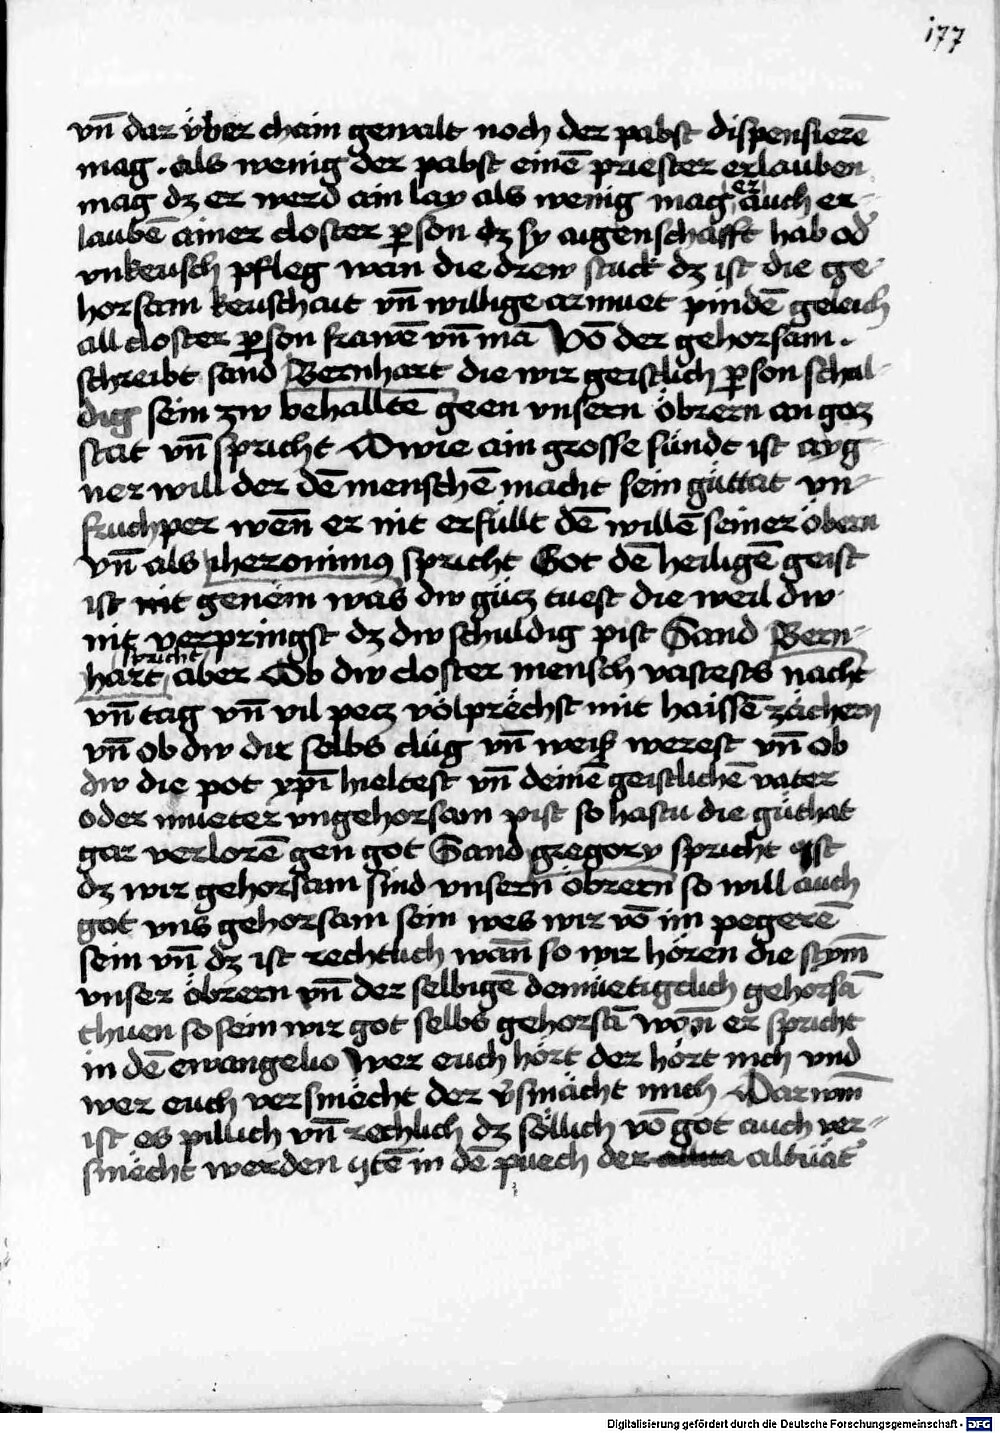 i77
vn̄ dar vber chain gewalt noch der pabst dispensierē
mag . als wenig der pabst einē priester erlauben
mag dz er werd ain lay als wenig mag er auch er-
laubē ainer closter ꝑson dz sy aigenschafft hab od̄
vnkeusch pfleg wan die drew stuck dz ist die ge-
horsam keuschait vn̄ willige armuet pindē geleich
all closter ꝑson frawē vn̄ mā Vō der gehorsam .
schreibt sand Bernhart die wir geistlich ꝑson schul-
dig sein zw behalltē geen vnsern öbrern an gotz
stat vn̄ spricht O wie ain grosse sündt ist ayg-
ner will der dē menschē macht sein güttat vn-
fruchper wen̄ er nit erfüllt dē willē seiner öbern
vn̄ als iheronimus spricht Got dē heiligē geist
ist nit genem was dw gütz tuest die weil dw
nit verpringst dz dw schuldig pist Sand Bern-
hart spricht aber Ob dw closter mensch vastests nacht
vn̄ tag vn̄ vil petz völprechst mit haissē zächern
vn̄ ob dw dir selbs clüg vn̄ weiß werest vn̄ ob
dw die pot xp̄i hieltest vn̄ deinē geistlichē vater
oder mueter vngehorsam pist so hastu die güthat
gar verlorē gen got Sand gregory spricht ist
dz wir gehorsam sind vnsern öbrern so will auch
got vns gehorsam sein wes wir vō im pegerē
sein vn̄ dz ist rechtlich wan̄ so wir hören die stym̄
vnser öbrern vn̄ der selbigē demüetigclich gehorsā
thuen so sein wir got selbs gehorsā wan̄ er spricht
in dē ewangelio Wer euch hört der hört mich vnd
wer euch versmächt der v̄smächt mich Darum̄
ist es pillich vn̄ rechlich dz söllich vō got auch ver-
smächt werden ytē in dē puech der altuät̄
Digitalisierung gefördert durch die Deutsche Forschungsgemeinschaft - DFG